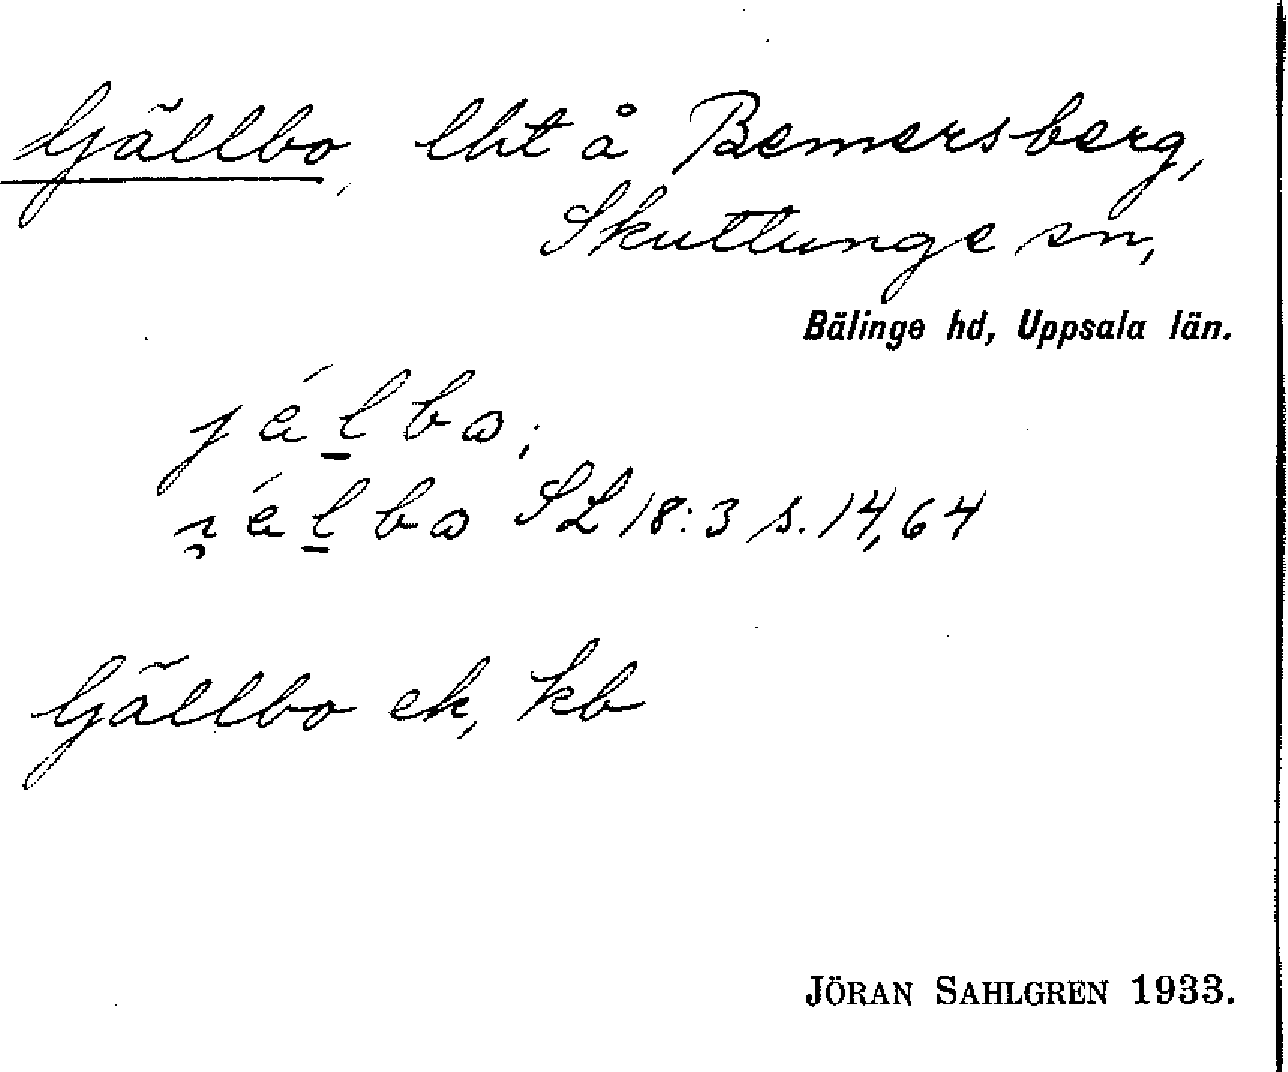 Gjällbo, lht å Bemersberg,
Skuttunge sn,
Bälinge hd, Uppsala län.
jálbo;
SL 18:3 s. 14, 64
Gjällbo ek, kb
JÖRAN SAHLGREN 1933.